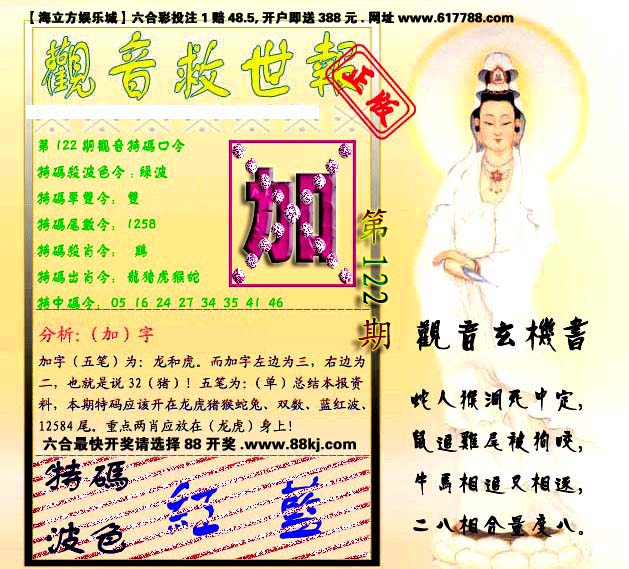 【海立方娱乐城】六合彩投注1赔48.5,开户即送388元.网址 www.617788.com
觀音救世報
正传
第122期觀音特碼口令
特碼殺波色令:綠波
特碼單雙令: 雙
特碼尾數令: 1258
特碼殺肖令: 鷄
特碼出肖令: 龍猪虎猴蛇
特中碼令: 05 16 24 27 34 35 41 46
加
第122期
分析:(加)字
加字(五笔)为:龙和虎。而加字左边为三,右边为
二,也就是说32(猪)!五笔为:(单)总结本报资
料,本期特码应该开在龙虎猪猴蛇兔、双数、蓝红波、
12584尾。重点两肖应放在(龙虎)身上!
六合最快开奖请选择88开奖.www.88kj.com
特碼
波色
紅 藍
觀音玄機書
蛇人猴洞死中定,
鼠追雞尾被狗咬,
牛馬相追又相逐,
二八相合量度八。